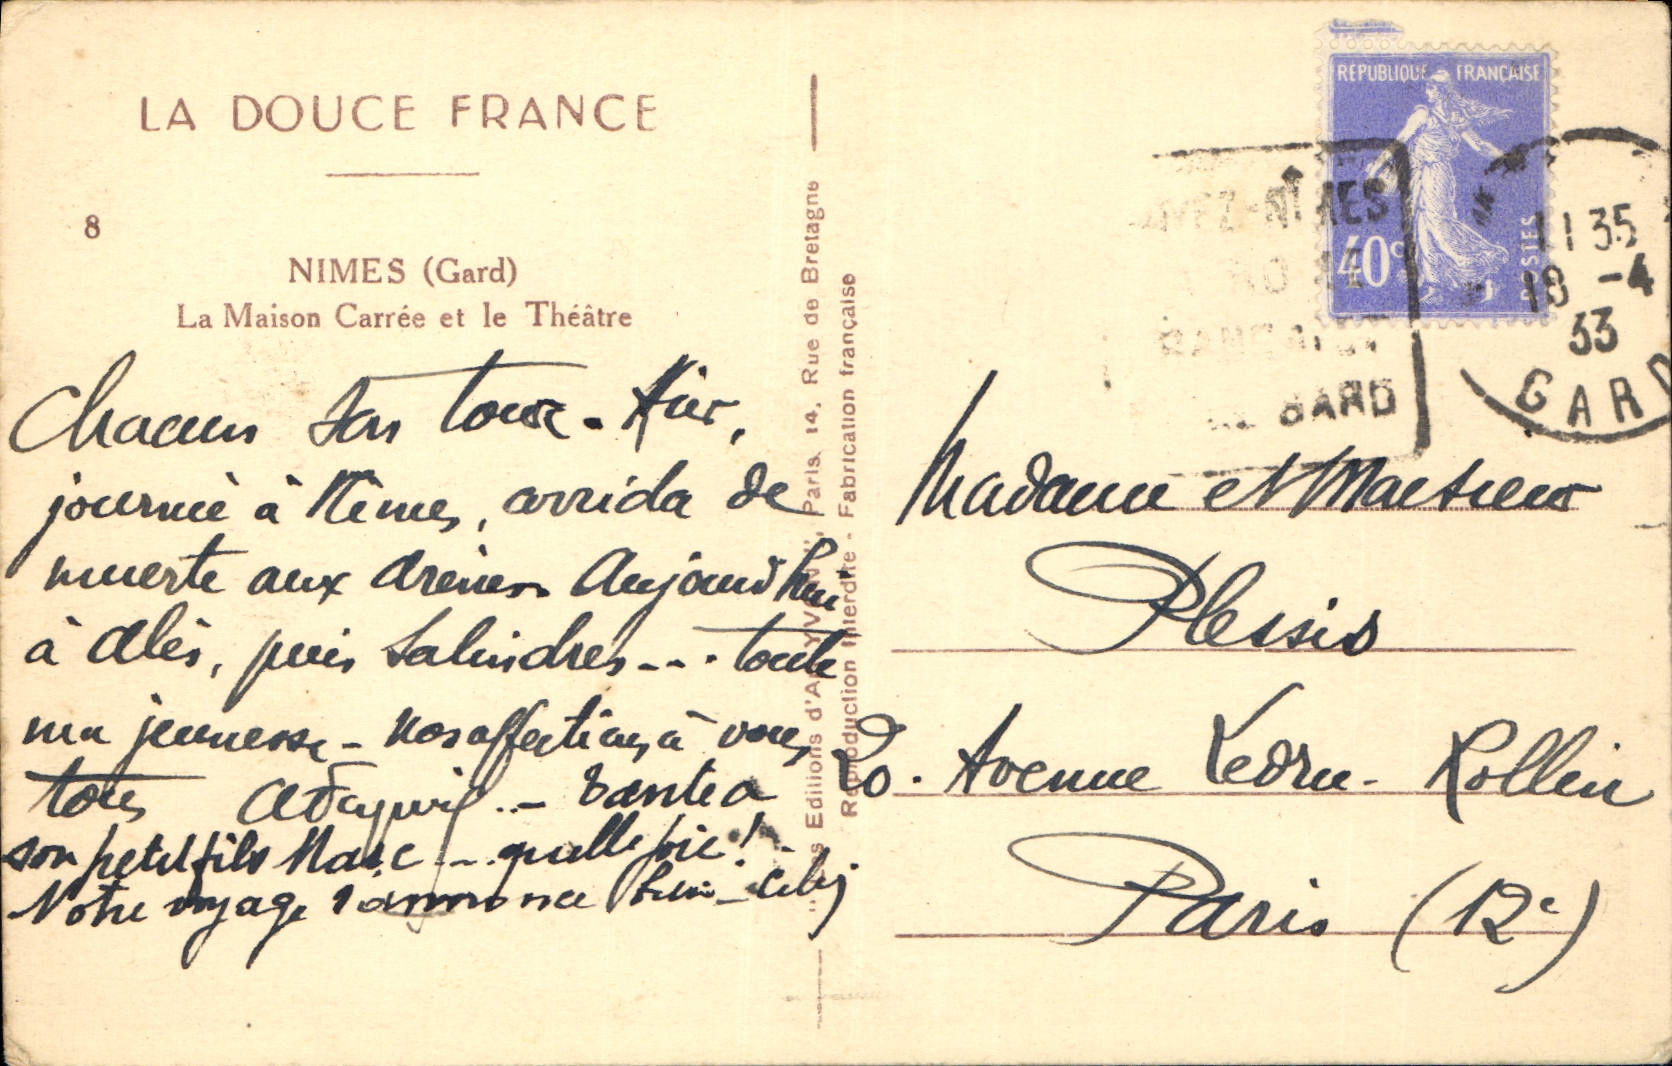 LA DOUCE FRANCE
8
NIMES (Gard)
La Maison Carrée et le Théâtre
Chacun son tour. Hier,
journée à Nîmes, corrida de
muerte aux arènes. Aujourd'hui
à Alès, puis Salindres... toute
ma jeunesse - Nos affections à vous
tous
son petit fils Marc... quelle joie!
Notre voyage s'annonce bien -
Les Editions d'Art YVON, Paris. 14, Rue de Bretagne
Reproduction interdite - Fabrication française
REPUBLIQUE FRANÇAISE
40c
POSTES
NIMES
GARD
11 35
18 -4
33
GARD
Madame et Monsieur
Plessis
20. Avenue Ledru-Rollin
Paris (12e)